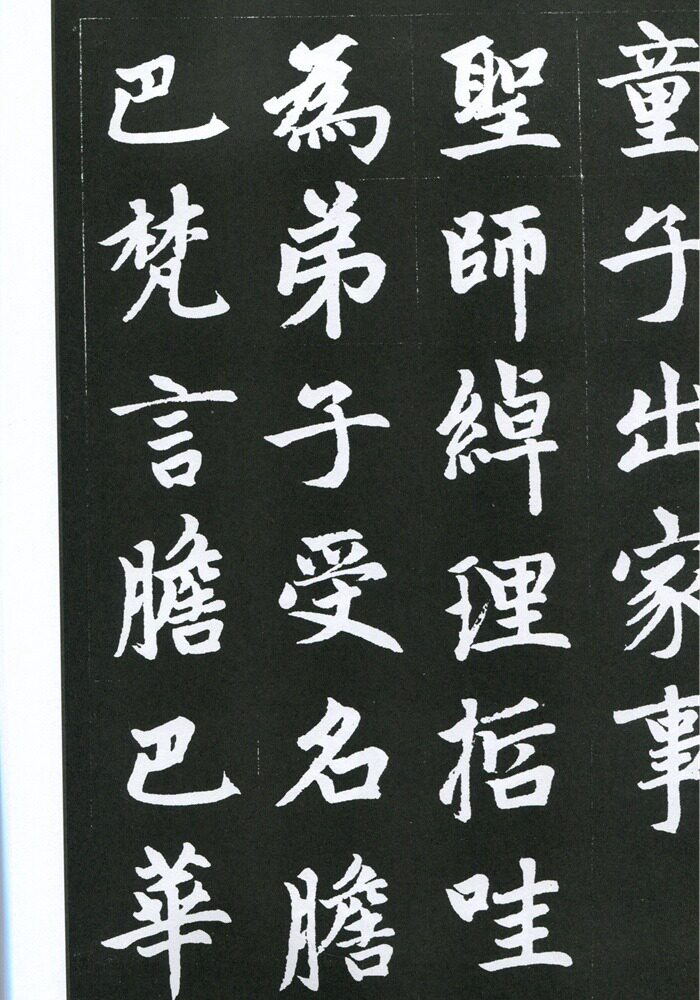 童子出家事
聖師綽理哲哇
為弟子受名膽
巴梵言膽巴華